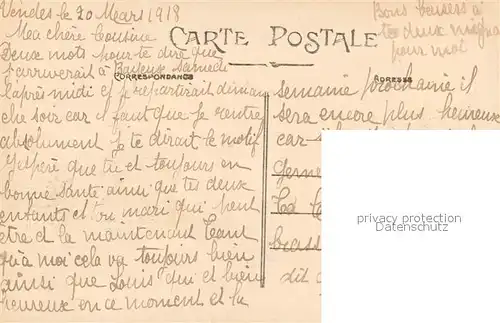 Vendes le 20 Mars 1918
Ma chère Cousine
Deux mots pour te dire que
j'arriverait à Bayeux samedi
l'après midi et je repartirait diman
che soir car il faut que je rentre
absolument je te dirait le motif
J'espère que tu et toujours en
bonne santé ainsi que tes deux
enfants et ton mari qui peut
être et la maintenant Tant
qu'à moi cela va toujours bien
ainsi que Louis qui et bien
heureux en ce moment et la
CARTE POSTALE
CORRESPONDANCE
ADRESSE
Bons baisers à
te deux
pour moi
semaine prochaine il
sera encore plus heureux
car
dit
privacy protection
www.oldthing.de